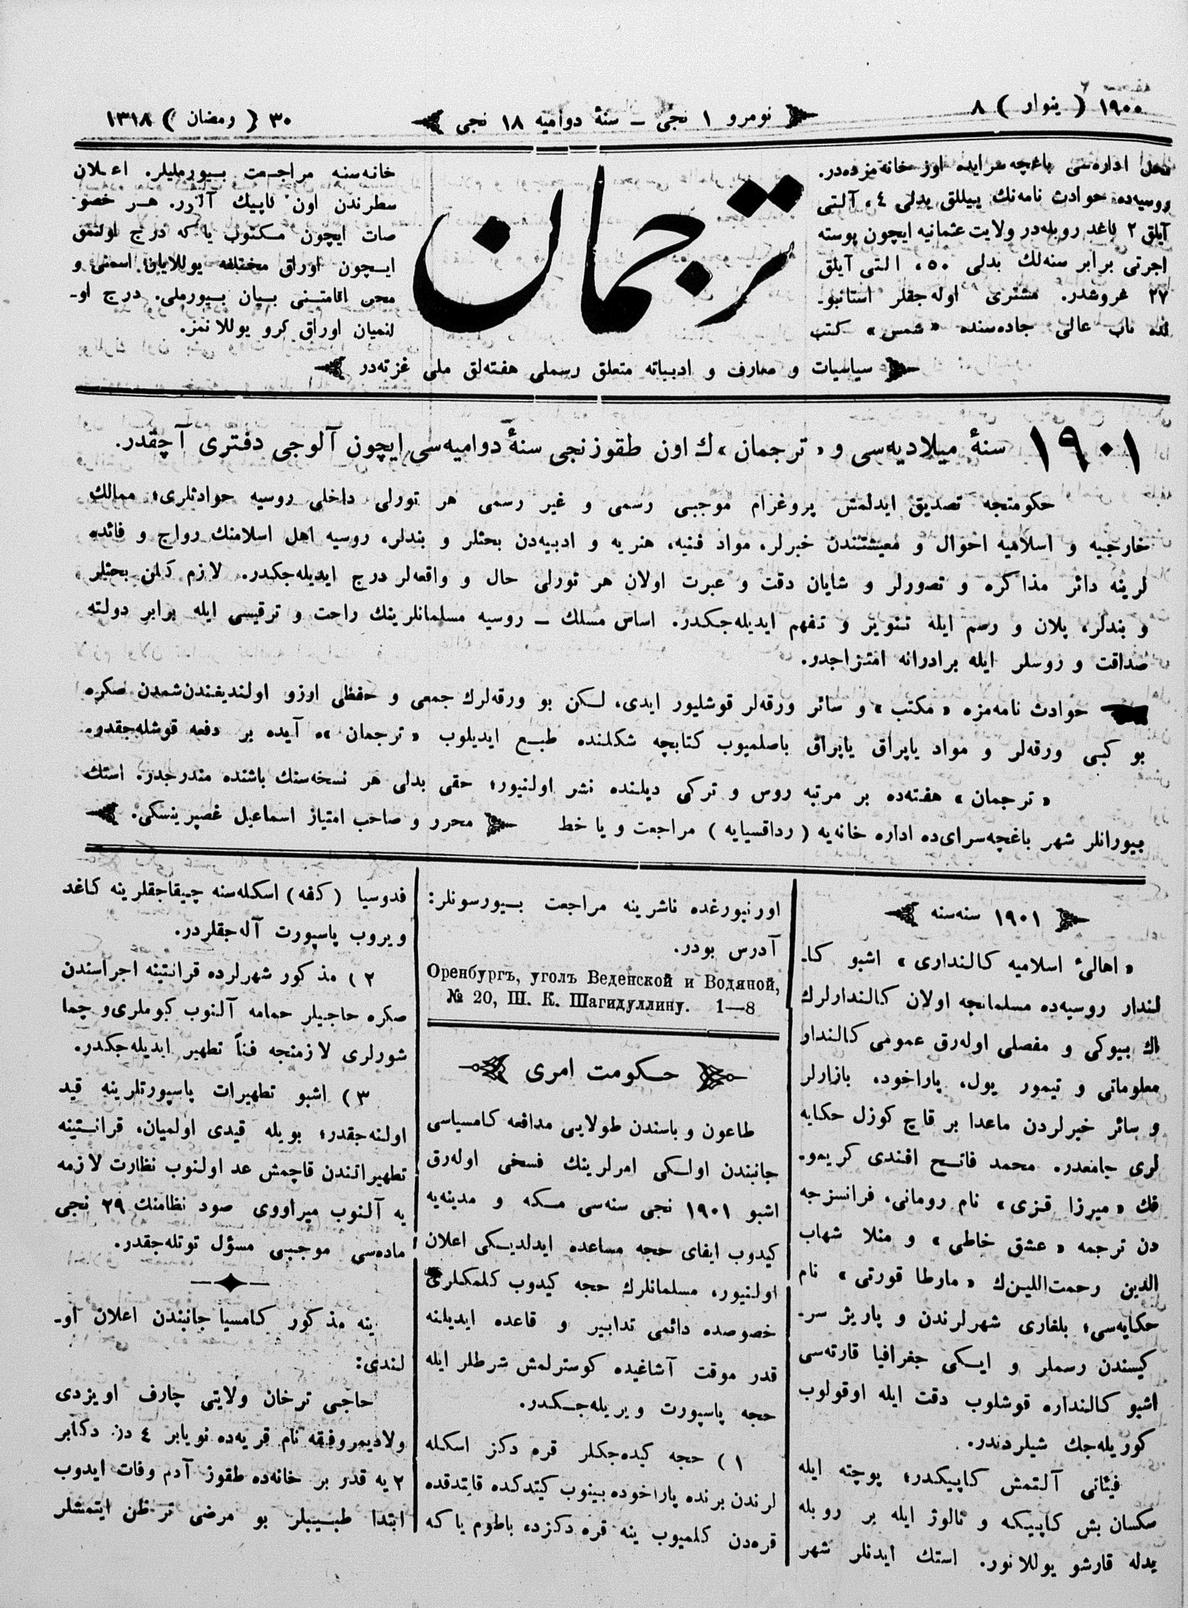 ١٩٠٠ ( ينوار ) ٨
نومرو ١ نجی ــ سنهٔ دواميه ١٨ نجی
٣٠ ( رمضان ) ١٣١٨
محل اداره‌سی باغچه‌سرايده اوز خانه‌مزده‌در.
روسيه‌ده حوادث نامه‌نك ييللق بدلی ٤، آلتی
آيلق ٢ كاغد روبله‌در ولايت عثمانيه ايچون پوسته
اجرتی برابر سنه‌لك بدلی ٥٠، التی آيلق
٢٧ غروشدر. مشتری اوله‌جقلر استانبو-
لده باب عالی جاده‌سنده «شمس» كتب
ترجمان
خانه‌سنه مراجعت بيورمليلر. اعلان
سطرندن اون كاپيك آلنور. هر خصو
صات ايچون مكتوب ياكه درج اولنمق
ايچون اوراق مختلفه يوللايان؛ اسمنی و
محل اقامتنی بيان بيورملی. درج او-
لنميان اوراق كرو يوللانمز.
سياسيات و معارف و ادبياته متعلق رسملی هفته‌لق ملی غزته‌در
١٩٠١ سنهٔ ميلاديه‌سی و «ترجمان»ك اون طقوزنجی سنهٔ دواميه‌سی ايچون آلوجی دفتری آچقدر.
حكومتجه تصديق ايدلمش پروغرام موجبی رسمی و غير رسمی هر تورلی داخلی روسيه حوادثلری؛ ممالك
خارجيه و اسلاميه احوال و معيشتندن خبرلر، مواد فنيه، هنريه و ادبيه‌دن بحثلر و بندلر، روسيه اهل اسلامنك رواج و فائده
لرينه دائر مذاكره و تصورلر و شايان دقت و عبرت اولان هر تورلی حال و واقعه‌لر درج ايديله‌جكدر. لازم كلن بحثلر
و بندلر، پلان و رسم ايله تنوير و تفهم ايديله‌جكدر. اساس مسلك ــ روسيه مسلمانلرينك راحت و ترقيسی ايله برابر دولته
صداقت و روسلر ايله برادرانه امتزاجدر.
حوادث نامه‌مزه «مكتب» و سائر ورقه‌لر قوشليور ايدی، لكن بو ورقه‌لرك جمعی و حفظی اوزو اولنديغندن‌شمدن صكره
بو كبی ورقه‌لر و مواد ياپراق ياپراق باصلميوب كتابچه شكلنده طبع ايديلوب «ترجمان»ه آيده بر دفعه قوشله‌جقدر.
«ترجمان» هفته‌ده بر مرتبه روس و تركی ديلنده نشر اولنيور؛ حقی بدلی هر نسخه‌سنك باشنده مندرجدر. استك
بيورانلر شهر باغچه‌سرای‌ده اداره خانه‌يه (رداقسيايه) مراجعت و يا خط محرر و صاحب امتياز اسماعيل غصپرينسكی.
١٩٠١ سنه‌سنه
«اهالیٔ اسلاميه كالنداری» اشبو كا-
لندار روسيه‌ده مسلمانجه اولان كالندارلرك
اك بيوكی و مفصلی اوله‌رق عمومی كالندار
معلوماتی و تيمور يول، پاراخود، بازارلر
و سائر خبرلردن ماعدا بر قاچ كوزل حكايه
لری جامعدر. محمد فاتح افندی كريمو-
فك «ميرزا قزی» نام رومانی، فرانسزجه
دن ترجمه «عشق خاطی» و منلا شهاب
الدين رحمت‌اللين‌ك «مارطا قورتی» نام
حكايه‌سی؛ بلغاری شهرلرندن و پاريژ سر-
كيسندن رسملر و ايكی جغرافيا قارته‌سی
اشبو كالنداره قوشلوب دقت ايله اوقولوب
كوريله‌جك شيلردندر.
فيئاتی آلتمش كاپيكدر؛ پوچته ايله
سكسان بش كاپيكه و نالوژ ايله بر روبله
بدله قارشو يوللانور. استك ايدنلر شهر
اورنبورغده ناشرينه مراجعت بيورسونلر:
آدرس بودر.
Оренбургъ, уголъ Веденской и Водяной,
№ 20, Ш. К. Шагидуллину. 1—8
حكومت امری
طاعون و باسندن طولايی مدافعه كامسياسی
جانبندن اولكی امرلرينك فسخی اوله‌رق
اشبو ١٩٠١ نجی سنه‌سی مكه و مدينه‌يه
كيدوب ايفای حجه مساعده ايدلديكی اعلان
اولنيور، مسلمانلرك حجه كيدوب كلمكلری
خصوصده دائمی تدابير و قاعده ايديلنه
قدر موقت آشاغيده كوسترلمش شرطلر ايله
حجه پاسپورت ويريله‌جكدر.
١) حجه كيده‌جكلر قرم دكز اسكله
لرندن برنده پاراخوده بينوب كيتدكده قايتدقده
قره‌دن كلميوب ينه قره دكزده باطوم ياكه
فدوسيا (كفه) اسكله‌سنه چيقاجقلرينه كاغد
ويروب پاسپورت آله‌جقلردر.
٢) مذكور شهرلرده قرانتينه اجراسندن
صكره حاجيلر حمامه آلنوب كيوملری‌و چما
شورلری لازمنجه فناً تطهير ايديله‌جكدر.
٣) اشبو تطهيرات پاسپورتلرينه قيد
اولنه‌جقدر؛ بويله قيدی اولميان، قرانتينه
تطهيراتندن قاچمش عد اولنوب نظارت لازمه
يه آلنوب ميراووی صود نظامنك ٢٩ نجی
ماده‌سی موجبی مسؤل توتله‌جقدر.
ينه مذكور كامسيا جانبندن اعلان او-
لندی:
حاجی ترخان ولايتی چارف اويزدی
ولاديمروفقه نام قريه‌ده نويابر ٤ دن دكابر
٢ يه قدر بر خانه‌ده طقوز آدم وفات ايدوب
ابتدا طبيبلر بو مرضی تر ظن ايتمشلر